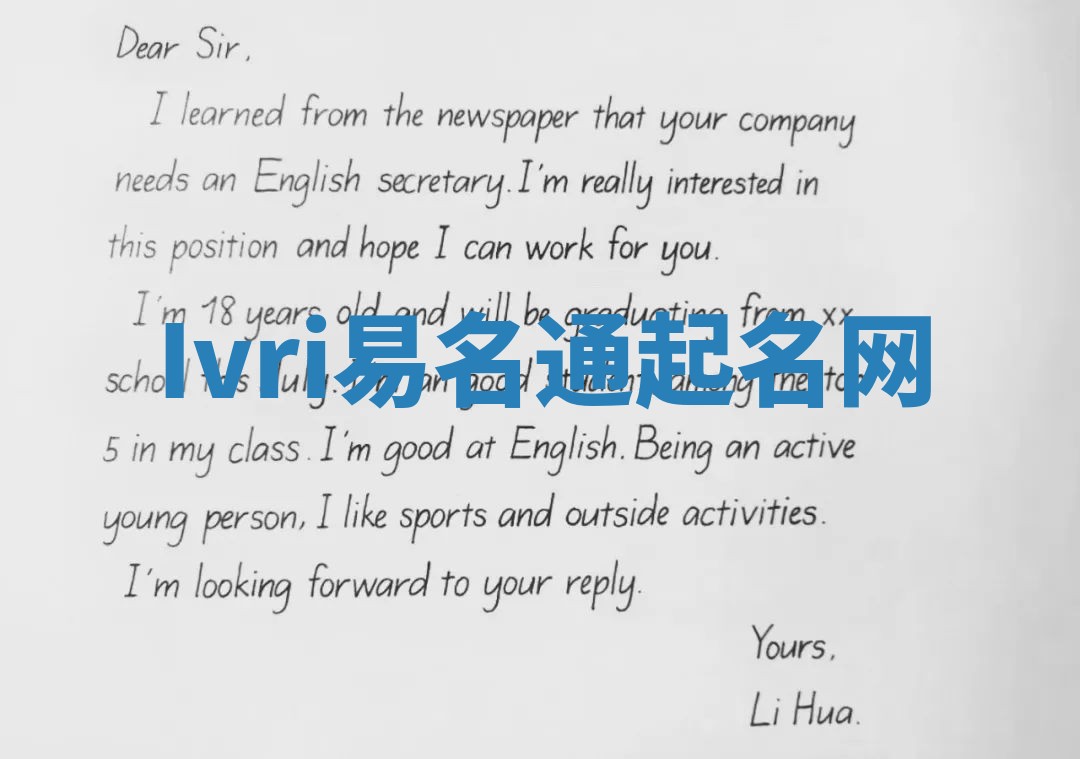 Dear Sir,
I learned from the newspaper that your company
needs an English secretary. I'm really interested in
this position and hope I can work for you.
I'm 18 years old and will be graduating from xx
school this July. I'm an good student among the top
5 in my class. I'm good at English. Being an active
young person, I like sports and outside activities.
I'm looking forward to your reply.
Yours,
Li Hua.
lvri易名通起名网